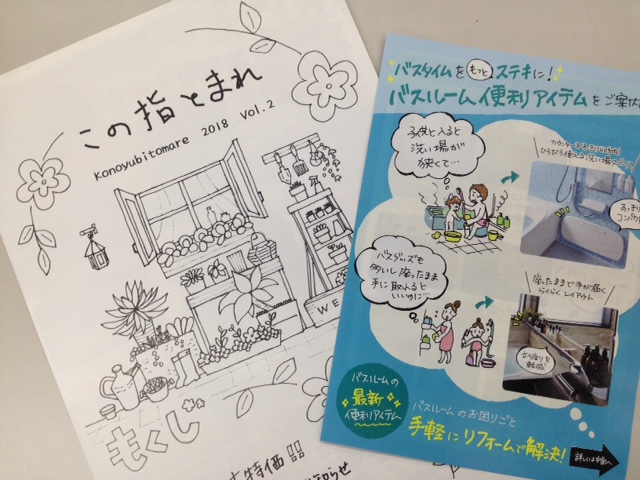 この指とまれ
Konoyubitomare 2018 Vol.2
WE
もくじ
大特価!!
お知らせ
バスタイムをもっとステキに!
バスルーム便利アイテムをご案内
子供と入ると
洗い場が
狭くて…
ひろびろ使える洗い場スペース!
バスグッズも
多いし座ったまま
手に取れると
いいのに…
座ったままで手が届く
らくらくレイアウト
立ち座りを
バスルームの
最新
便利アイテム
バスルームのお困りごと
手軽にリフォームで解決!
詳しくは中面へ